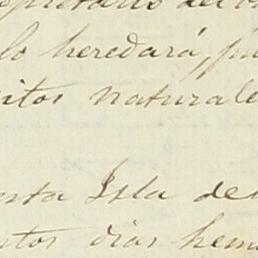 lo heredará, pu
itos naturale
esta Isla de
ntos dias hem